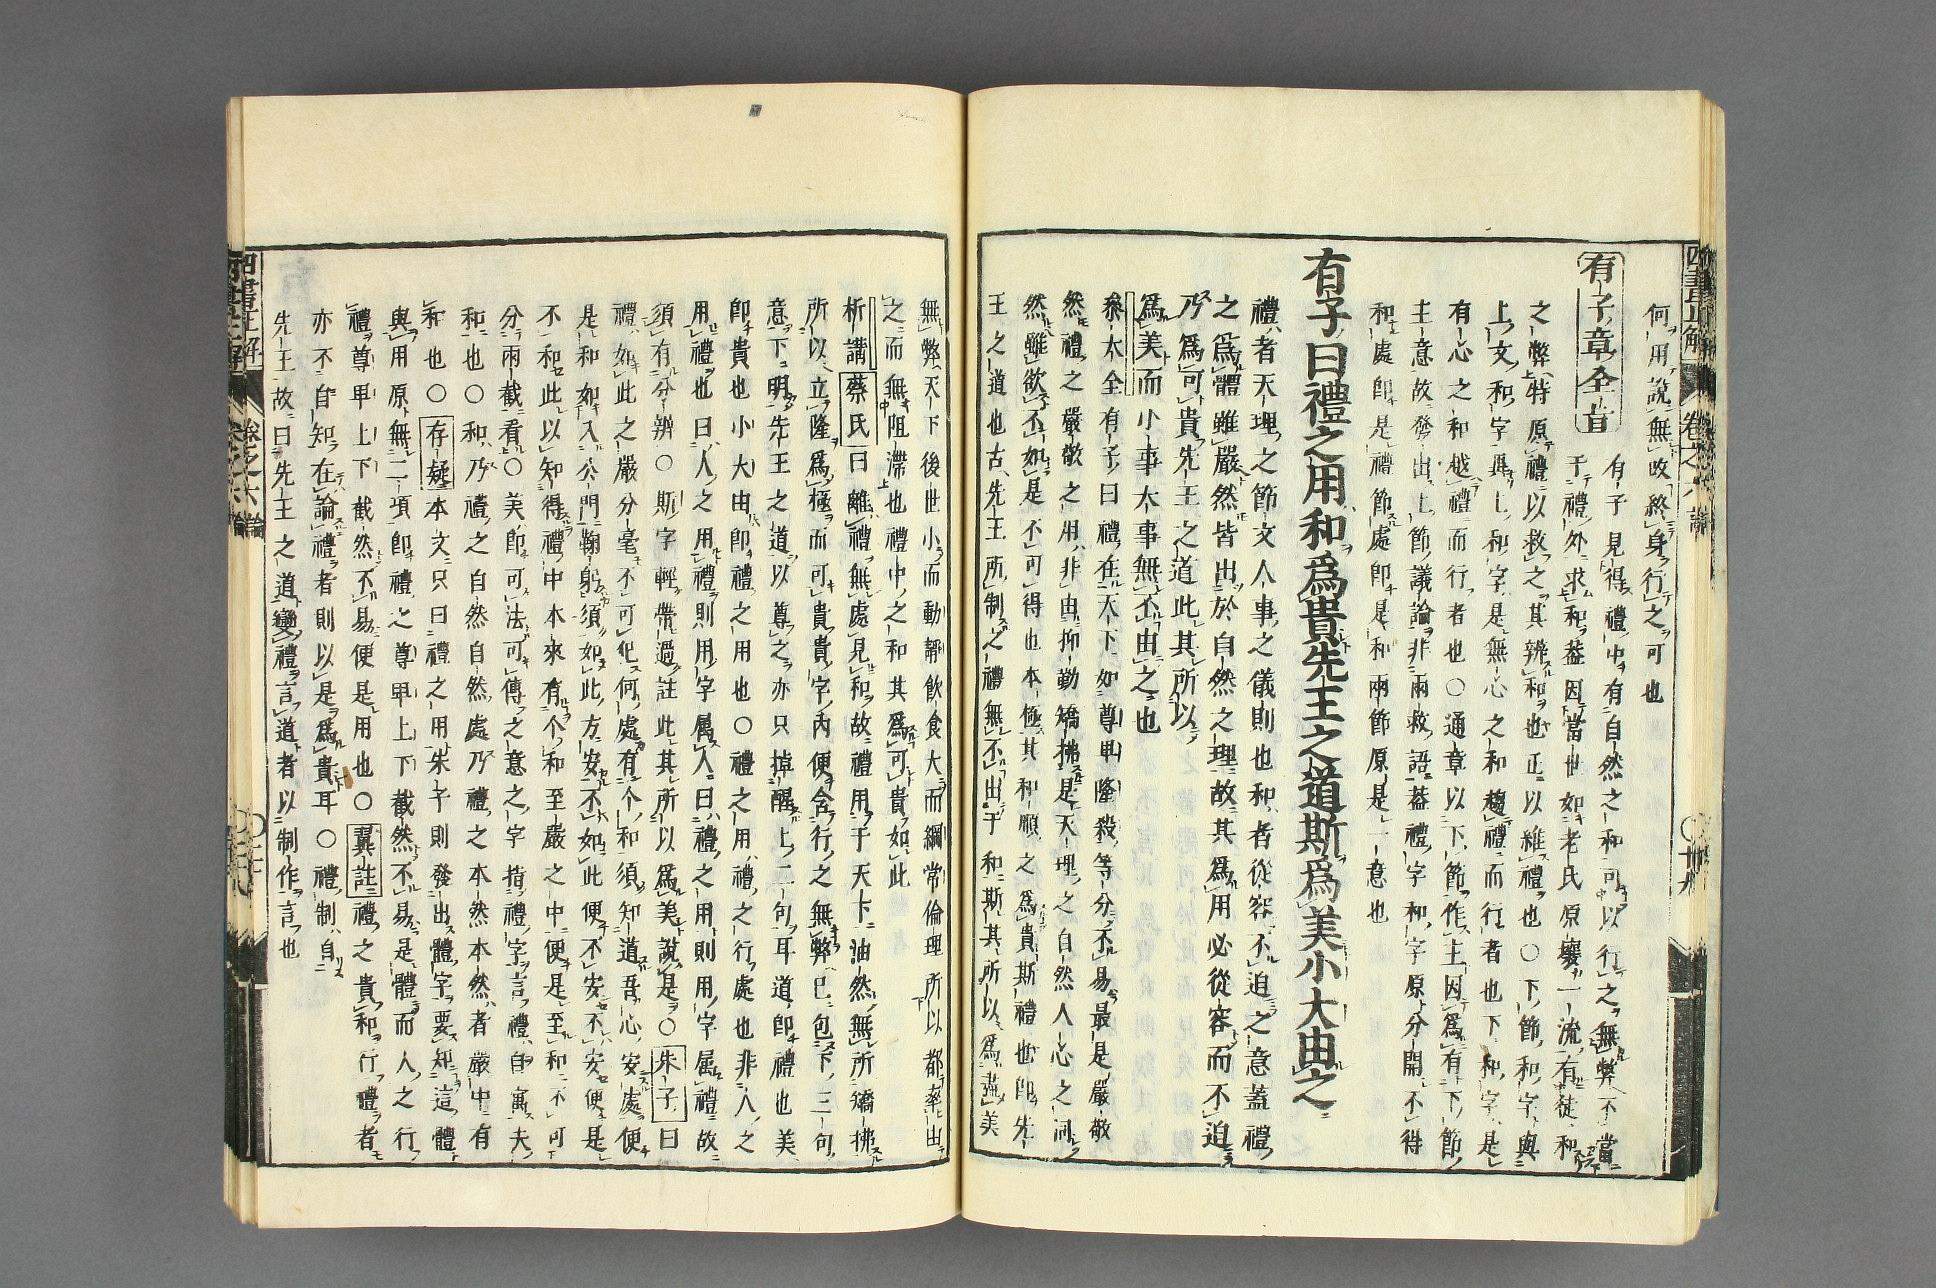 何用說無改終身行之可也
有子章全旨 有子見得禮中有自然之和可以行之無弊不當
于禮外求和蓋因當世如老氏原壤一流有徒和
之弊特原禮以救之其辨和也正以維禮也○下節和字與
上文和字異上和字是無心之和趨禮而行者也下和字是
有心之和越禮而行者也○通章以下節作主因爲有下節
主意故發出上節議論非兩救語蓋禮字和字原分開不得
和處卽是禮節處卽是和兩節原是一意也
有子曰禮之用和爲貴先王之道斯爲美小大由之
禮者天理之節文人事之儀則也和者從容不迫之意蓋禮
之爲體雖嚴然皆出於自然之理故其爲用必從容而不迫
乃爲可貴先王之道此其所以
爲美而小事大事無不由之也
叅大全有子曰禮在天下如尊卑隆殺等分不易最是嚴敬
然禮之嚴敬之用非由抑勒矯拂是天理之自然人心之同
然雖欲不如是不可得也本極其和順之爲貴斯禮也卽先
王之道也古先王所制之禮無不出于和斯其所以爲盡美
無弊天下後世小而動靜飲食大而綱常倫理所以都率由
之而無阻滯也禮中之和其爲可貴如此
析講 蔡氏曰離禮無處見和故禮用于天下油然無所矯拂
所以立隆爲極而可貴貴字內便含行之無弊已包下三句
意下明先王之道以尊之亦只掉醒上二句耳道卽禮也美
卽貴也小大由卽禮之用也○禮之用禮之行處也非人之
用禮也曰人之用禮則用字属人曰禮之用則用字属禮故
須有分辨○斯字輕帶過註此其所以爲美說是○朱子曰
禮如此之嚴分毫不可犯何處有个和須知道吾心安處便
是和如入公門鞠躬須如此方安不如此便不安不安便是
不和此以知得禮中本來有个和至嚴之中便是至和不可
分兩截看○美卽可法可傳之意之字指禮字言禮自寓夫
和也○和乃禮之自然自然處乃禮之本然本然者嚴中有
和也○存疑本文只曰禮之用朱子則發出體字要知這體
與用原無二項卽禮之尊卑上下截然不易是體而人之行
禮尊卑上下截然不易便是用也○翼註禮之貴和行禮者
亦不自知在論禮者則以是爲貴耳○禮制自
先王故曰先王之道變禮言道者以制作言也